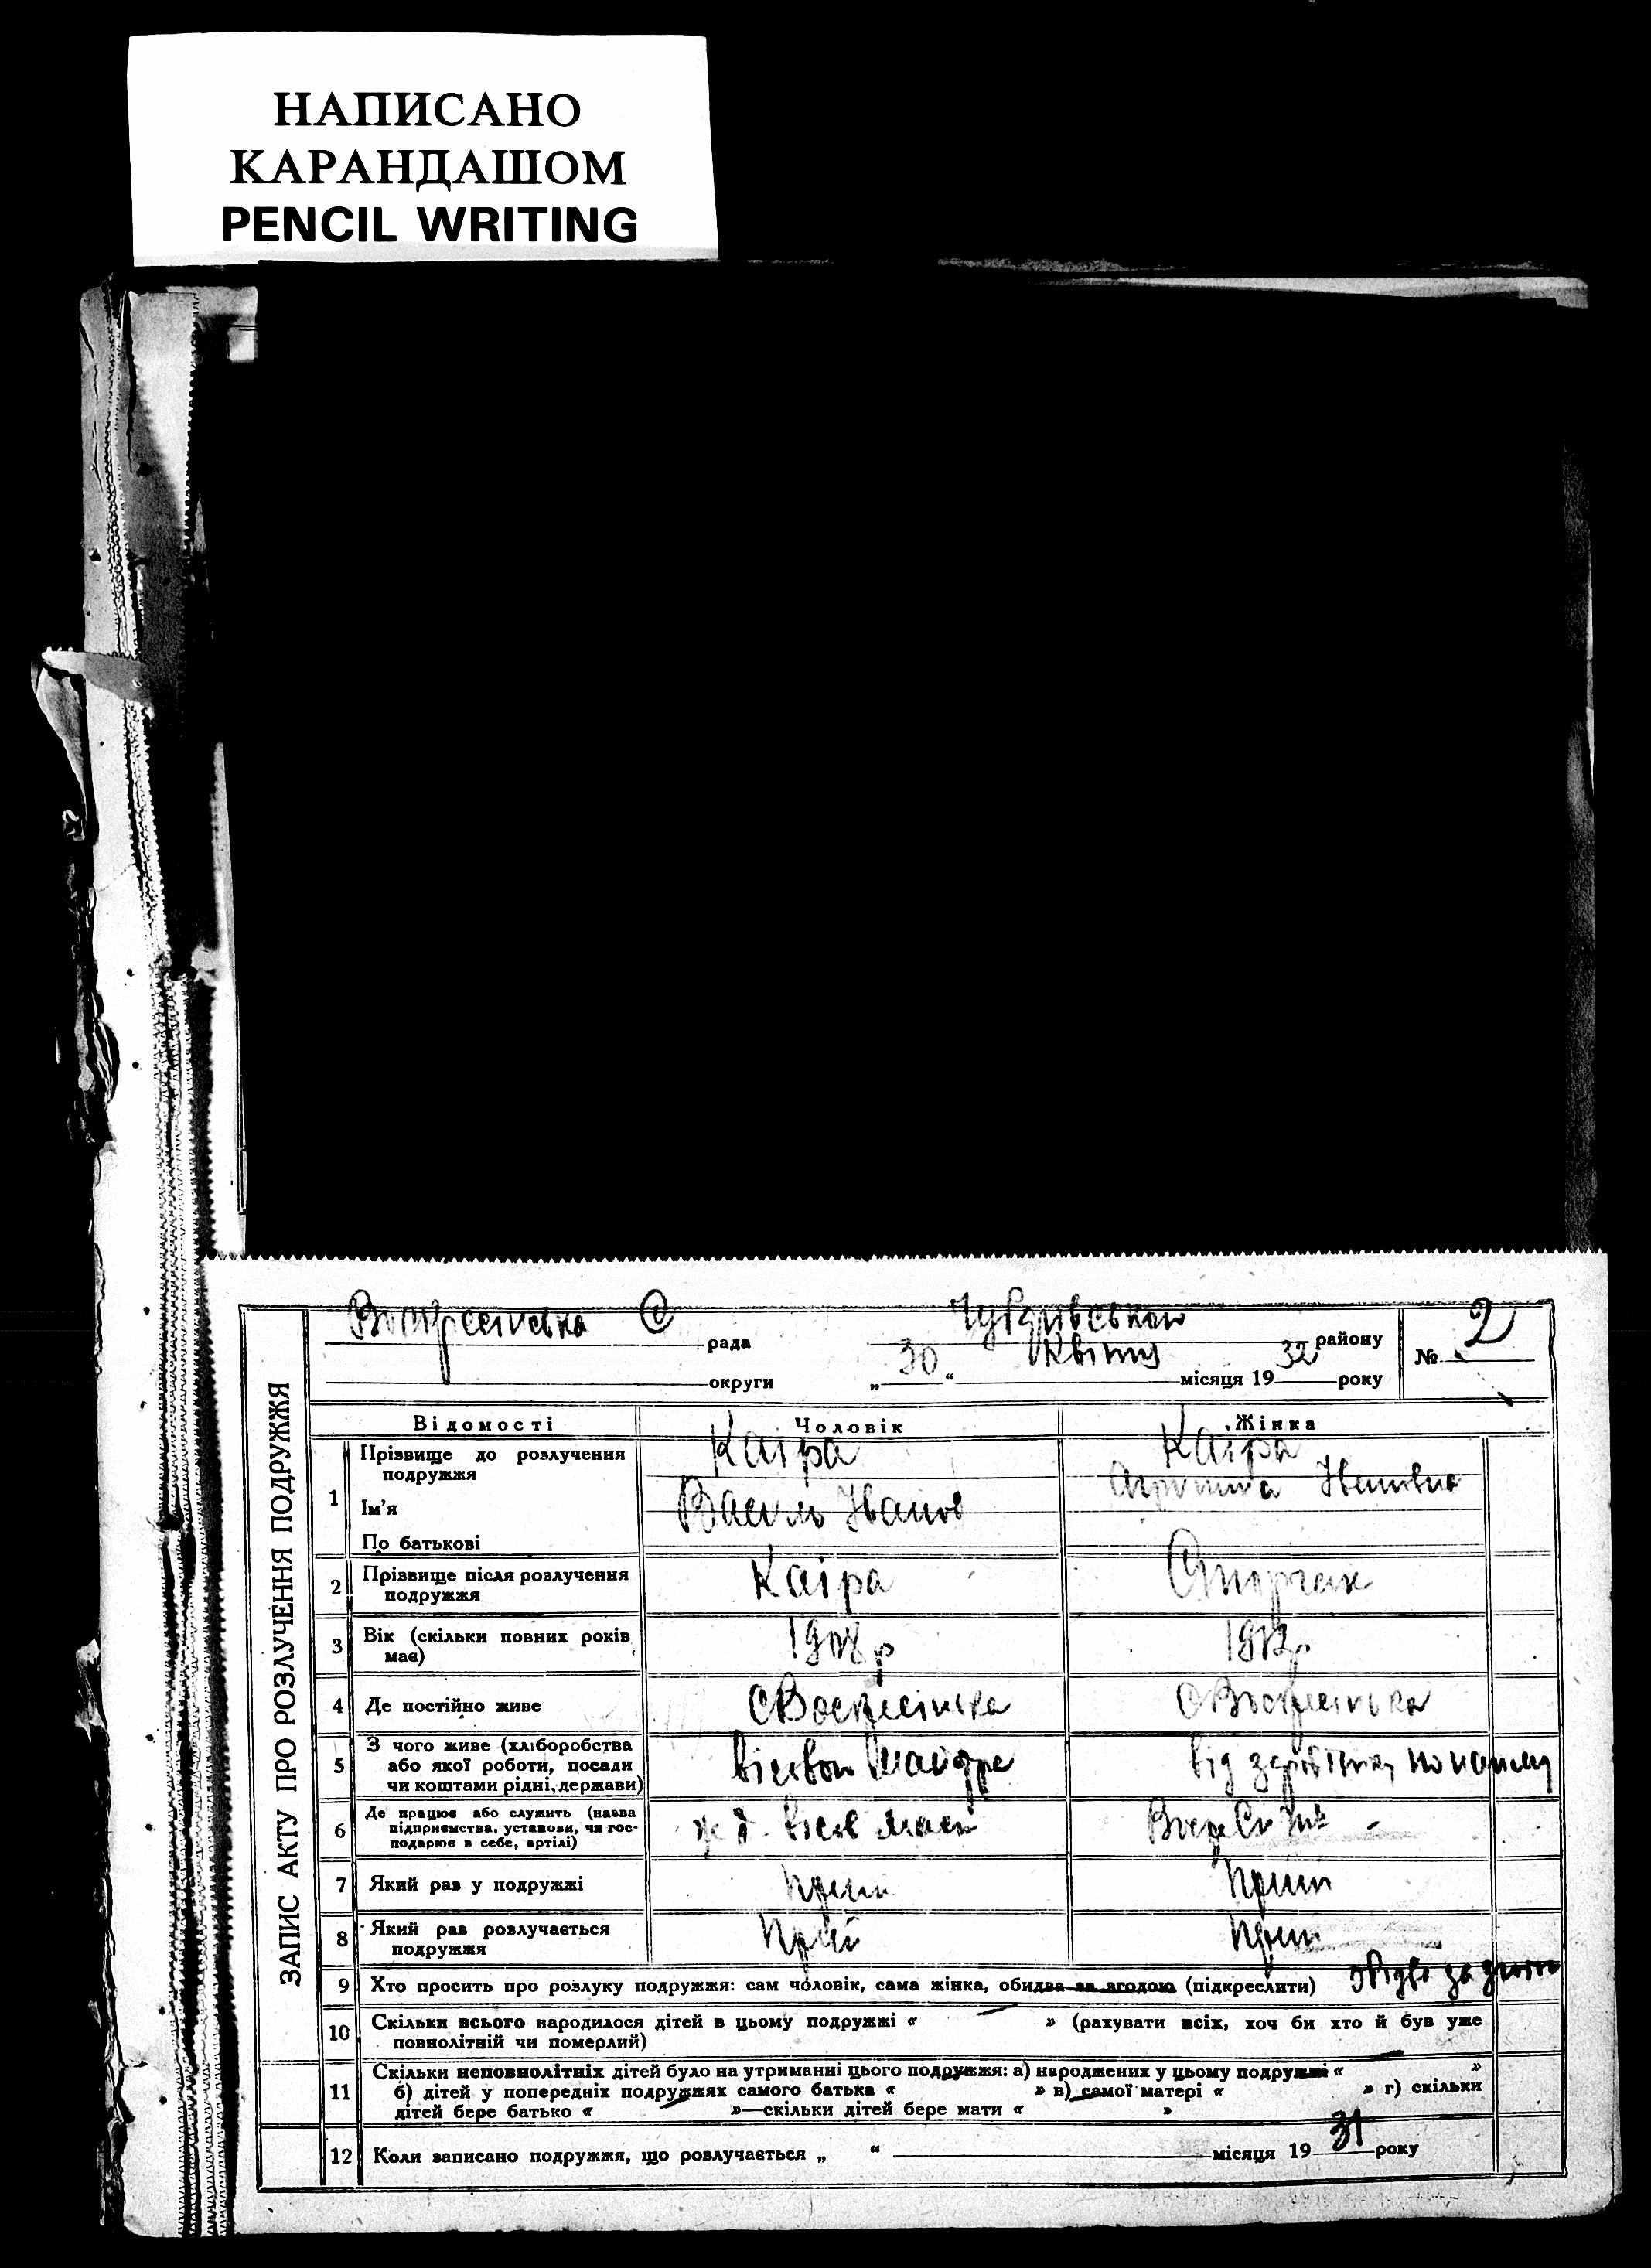 НАПИСАНО
КАРАНДАШОМ
PENCIL WRITING
ЗАПИС АКТУ ПРО РОЗЛУЧЕННЯ ПОДРУЖЖЯ
Воскресінська С рада Чубарівського району № 2
округи „ 30 “ квітня місяця 19 32 року
Відомості Чоловік Жінка
1 Прізвище до розлучення Каіра Каіра
подружжя
Ім'я Василь Іванов Івановна
По батькові
2 Прізвище після розлучення Каіра
подружжя
3 Вік (скільки повних років 1908 р
має)
4 Де постійно живе С Воскресінка С Воскресінка
5 З чого живе (хліборобства
або якої роботи, посади
чи коштами рідні, держави)
6 Де працює або служить (назва
підприємства, установи, чи гос-
подарює в себе, артілі)
7 Який раз у подружжі
8 Який раз розлучається
подружжя
9 Хто просить про розлуку подружжя: сам чоловік, сама жінка, обидва за згодою (підкреслити)
10 Скільки всього народилося дітей в цьому подружжі « — » (рахувати всіх, хоч би хто й був уже
повнолітній чи померлий)
11 Скільки неповнолітніх дітей було на утриманні цього подружжя: а) народжених у цьому подружжі « »
б) дітей у попередніх подружжях самого батька « » в) самої матері « » г) скільки
дітей бере батько « »—скільки дітей бере мати « »
12 Коли записано подружжя, що розлучається „ “ місяця 19 31 року